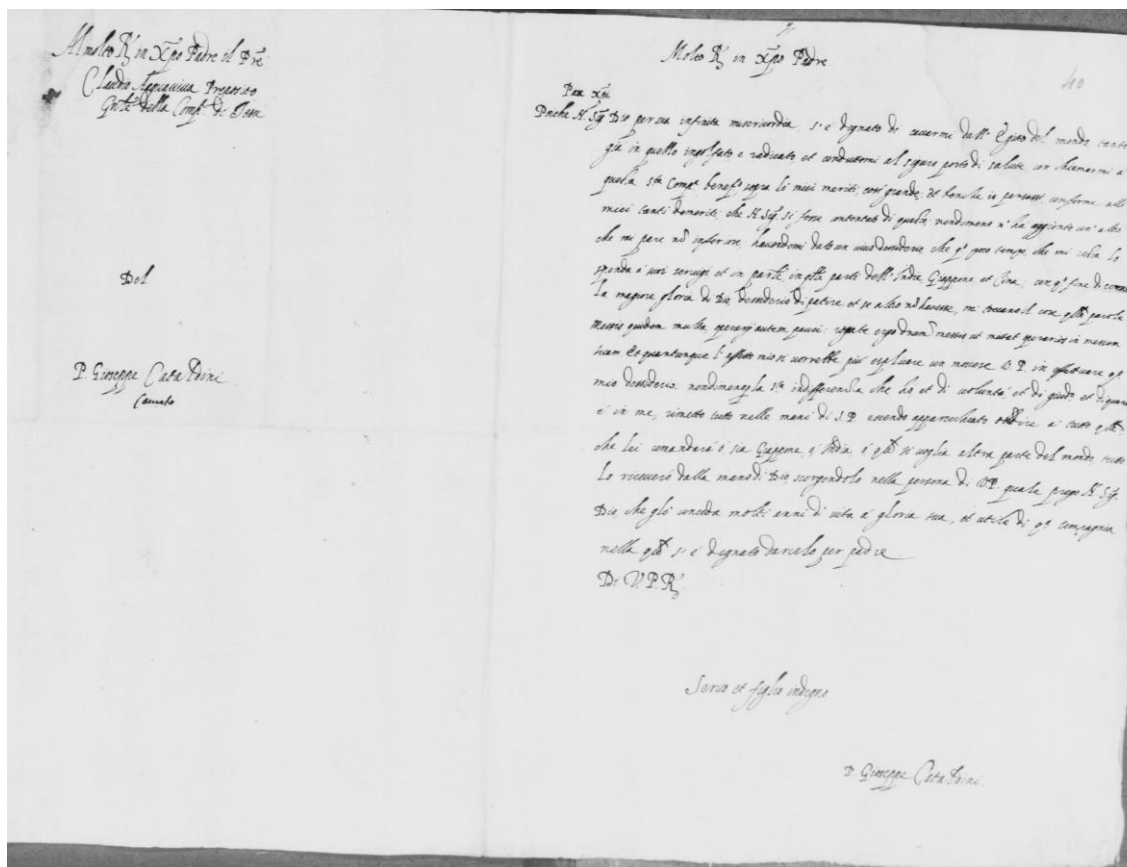 Al molto R. in Xpo Padre el Pre
Claudio Aquaviva Preposito
Gnle della Comp. di Jesu
Del
P. Giuseppe Cataldini
40
Molto R. in Xpo Padre
Pax Xpi
Poiche N. Sig. Dio per sua infinita misericordia s'è degnato di cavarmi dall'Egito del mondo, tanto
già in quello ingolfato e radicato et condottomi al sicuro porto di salute con chiamarmi a
questa Sta Comp. benef. sopra li miei meriti così grande, et benche io pensassi conforme alli
miei tanti demeriti, che N. Sig. si fosse contentato di questo, nondimeno n'ha aggiunto un'altro
che mi pare nō inferiore, havendomi dato un vivo desiderio, che q. poco tempo, che mi resta lo
spenda a suoi servigi et in parte, in qlle parti dell'India, Giappone, et Cina, con q. fine di
la magiore gloria di Dio, desiderio di patire et se altro nō havesse, mi toccano il core qlle parole
Messis quidem multa, operarij autem pauci: rogate ergo dnum messis ut mittat operarios in messem
suam Et quantunque l'affetto mio si vorrebbe più
mio desiderio. nondimeno la sta indifferenza che ho et di volunta et di giuditio et di quanto
è in me, rimetto tutto nelle mani di S.P. essendo apparecchiato obedire a tutto qllo
che lei comandarà ò, sia Giappone, ò India, ò qlsi si voglia altra parte del mondo, tutto
lo riceverò dalla mano di Dio, scorgendolo nella persona di V.P. quale prego N. Sig.
Dio, che gli conceda molti anni di vita a gloria sua, et utile di q. compagnia
nella qle si è degnato darcelo per padre
Di V.P.R.
Servo et figlio indegno
P. Giuseppe Cataldini